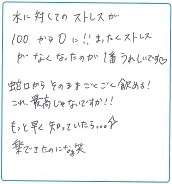 水に対してのストレスが
100から0に!!まったくストレス
がなくなったのが1番うれしいです♡
蛇口からそのままごくごく飲める!
これ、最高じゃないですか!!
もっと早く知っていたら...☆
楽できたのになぁ笑